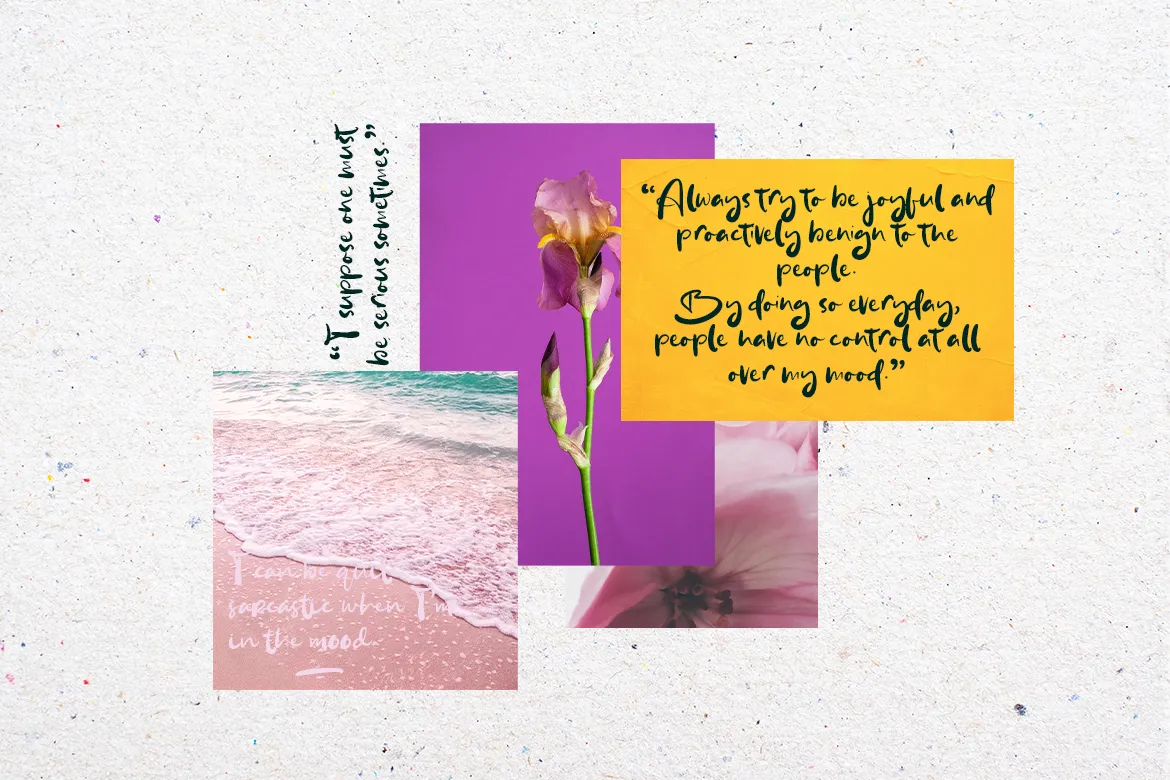 “I suppose one must
be serious sometimes.”
“Always try to be joyful and
proactively benign to the
people.
By doing so everyday,
people have no control at all
over my mood.”
I can be quit
sarcastic when I'm
in the mood.